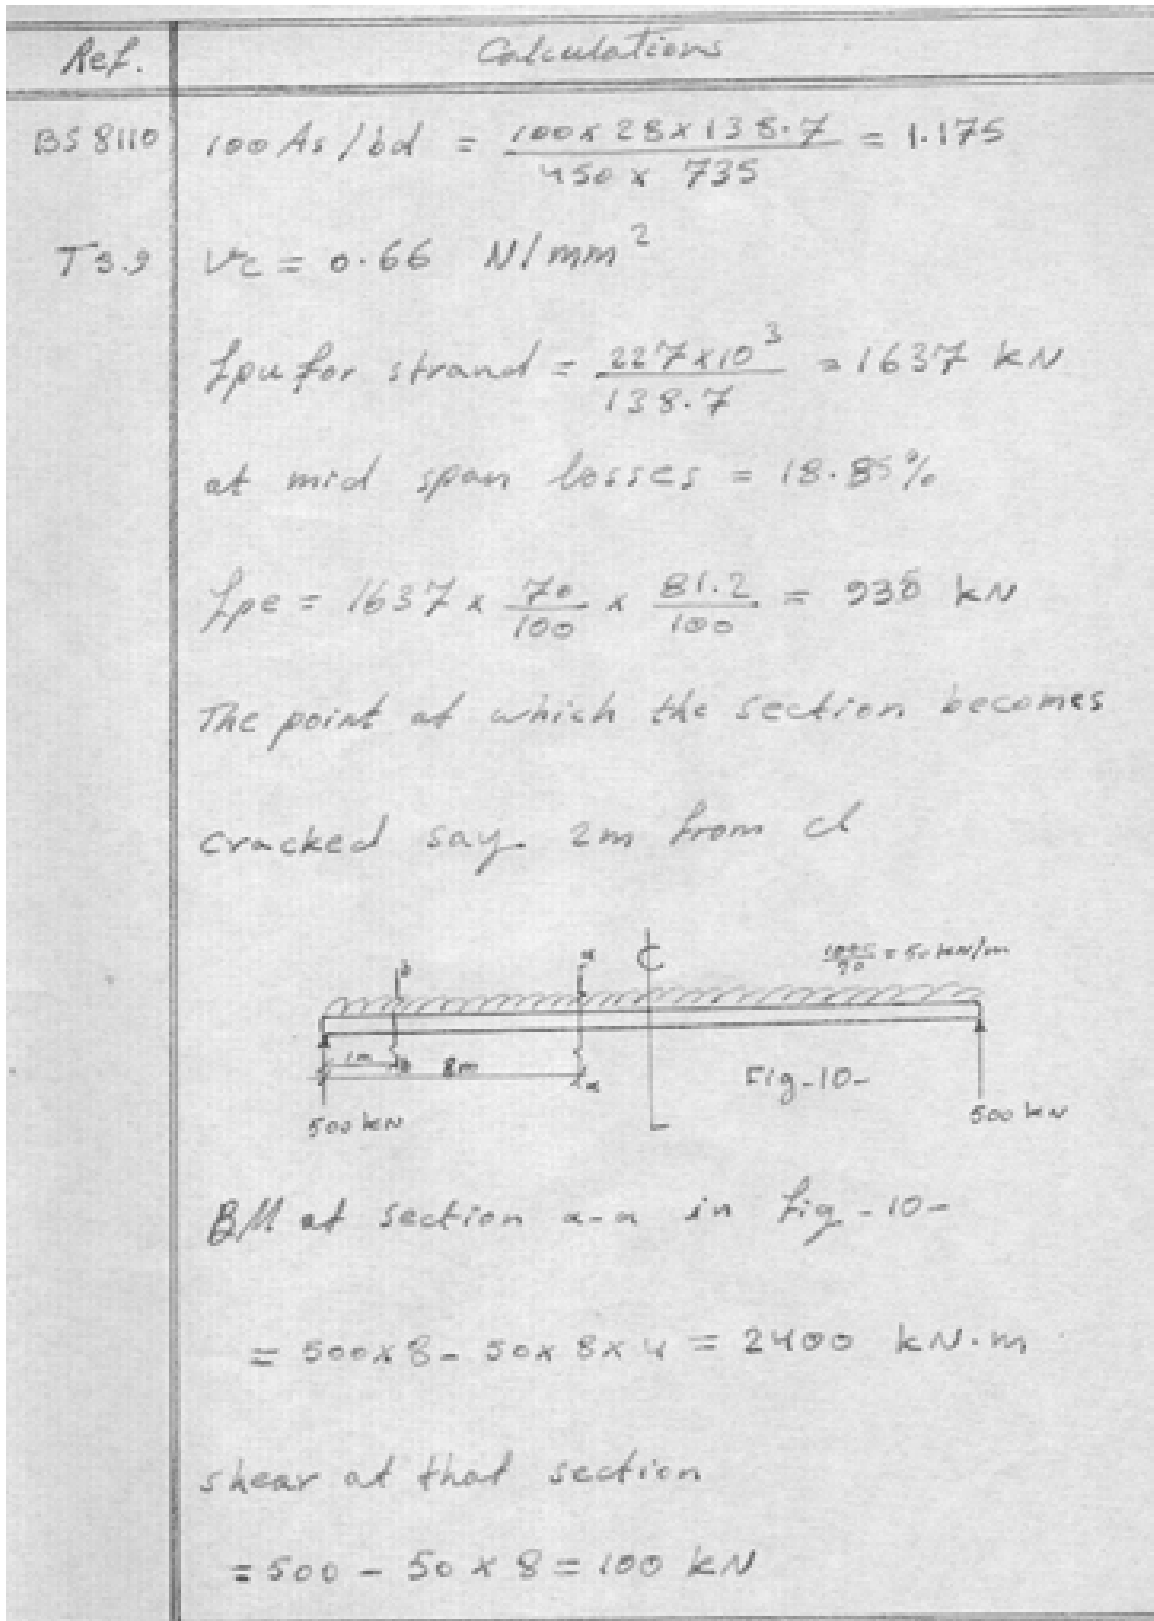 Ref. Calculations
BS 8110 100 As / bd = 100 x 28 x 138.7 / 450 x 735 = 1.175
T 3.9 vc = 0.66 N/mm²
fpu for strand = 227 x 10³ / 138.7 = 1637 kN
at mid span losses = 18.85%
fpe = 1637 x 70/100 x 81.2/100 = 930 kN
The point at which the section becomes
cracked say. 2m from cl
= 50 kN/m
1m 8m Fig-10-
500 kN 500 kN
BM at section a-a in fig-10-
= 500 x 8 - 50 x 8 x 4 = 2400 kN.m
shear at that section
= 500 - 50 x 8 = 100 kN